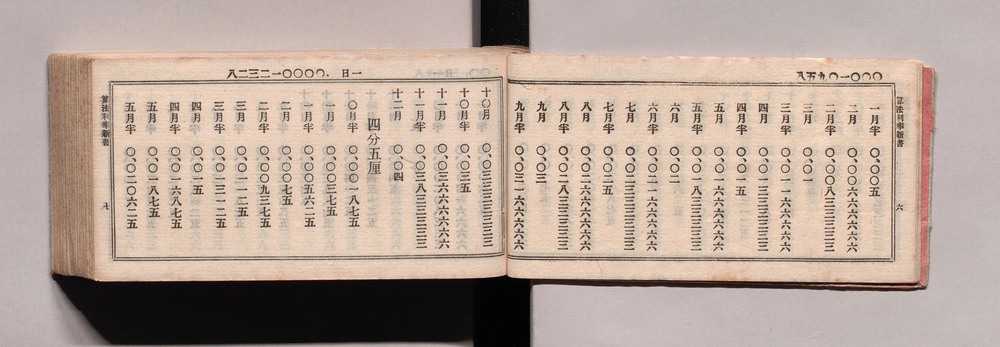 〇〇〇一〇九五八
算法利率新書 六
一月半 〇、〇〇五
二月 〇、〇〇六六六六六六
二月半 〇、〇〇八三三三三三
三月 〇、〇一
三月半 〇、〇一一六六六六六
四月 〇、〇一三三三三三三
四月半 〇、〇一五
五月 〇、〇一六六六六六六
五月半 〇、〇一八三三三三三
六月 〇、〇二
六月半 〇、〇二一六六六六六
七月 〇、〇二三三三三三三
七月半 〇、〇二五
八月 〇、〇二六六六六六六
八月半 〇、〇二八三三三三三
九月 〇、〇三
九月半 〇、〇三一六六六六六
一日 .〇〇〇〇一二三二八
十〇月 〇、〇三三三三三三三
十〇月半 〇、〇三五
十一月 〇、〇三六六六六六六
十一月半 〇、〇三八三三三三三
十二月 〇、〇四
四分五厘
〇月半 〇、〇〇一八七五
一月 〇、〇〇三七五
一月半 〇、〇〇五六二五
二月 〇、〇〇七五
二月半 〇、〇〇九三七五
三月 〇、〇一一二五
三月半 〇、〇一三一二五
四月 〇、〇一五
四月半 〇、〇一六八七五
五月 〇、〇一八七五
五月半 〇、〇二〇六二五
算法利率新書 七